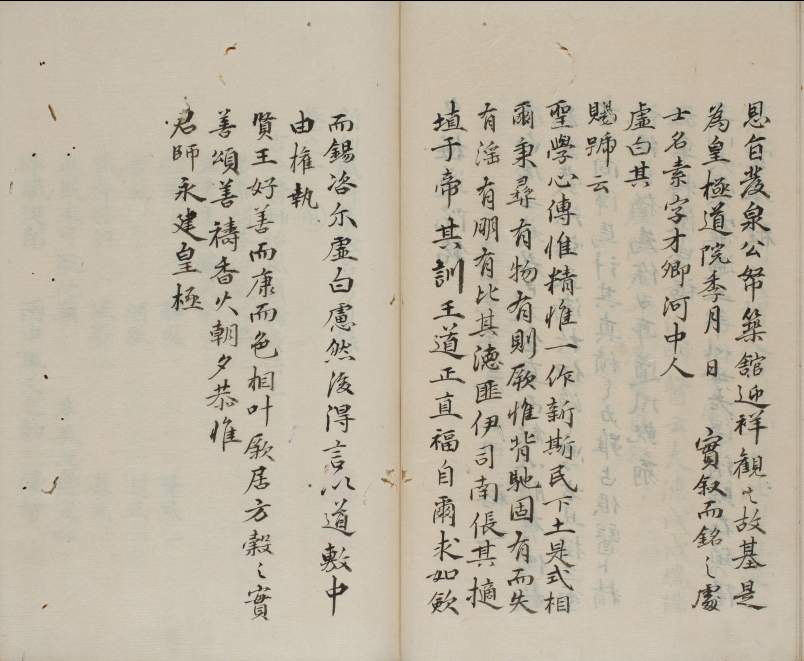 恩自發泉公帑築館迎祥觀之故基是
為皇極道院季月 日 實叙而銘之處
士名素字才卿河中人
虛白其
賜號云
聖學心傳惟精惟一作新斯民下土是式相
爾秉彞有物有則厥惟背馳固有而失
有滛有朋有比其德匪伊司南倀其擿
埴于帝其訓王道正直福自爾求如歛
而錫咨尒虛白慮然後得言以道敷中
由權執
賢王好善而康而色相叶厥居方穀之實
善頌善禱香火朝夕恭惟
君師永建皇極